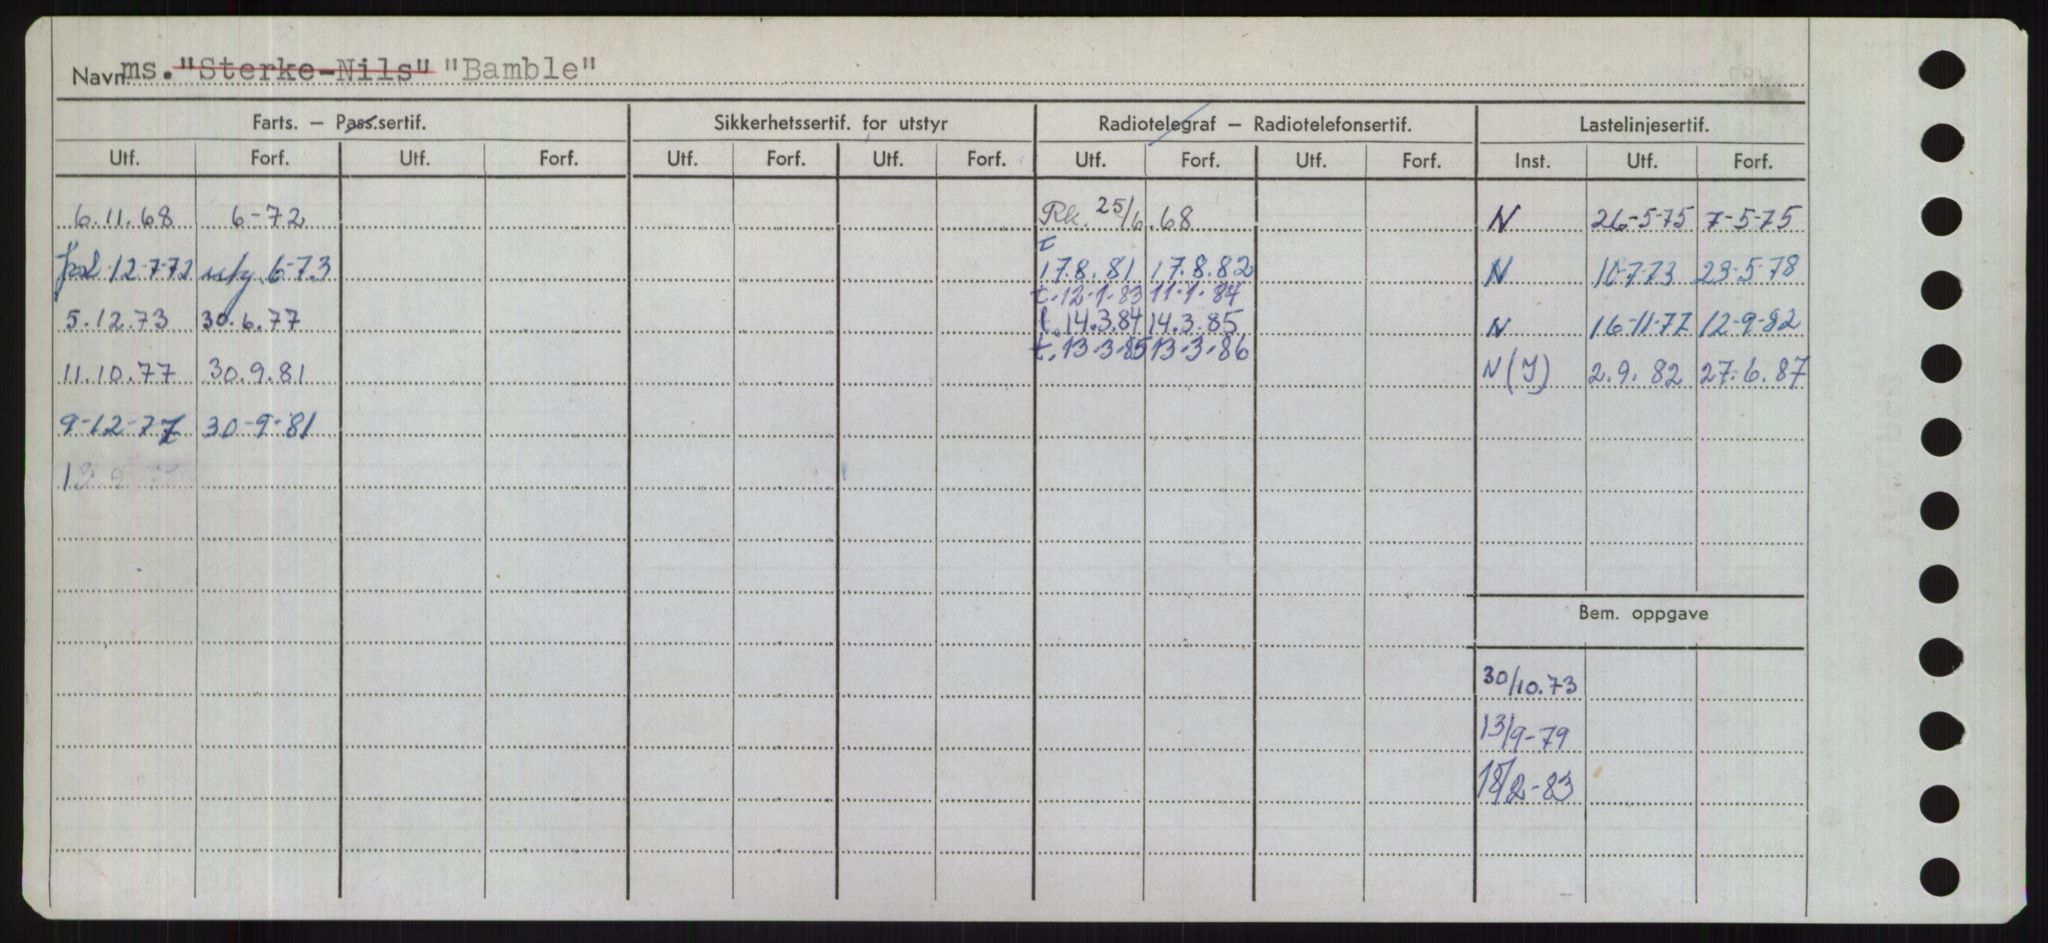 Navn ms. "Sterke-Nils" "Bamble"
Farts. – Pass.sertif. Sikkerhetssertif. for utstyr Radiotelegraf – Radiotelefonsertif. Lastelinjesertif.
Utf. Forf. Utf. Forf. Utf. Forf. Utf. Forf. Utf. Forf. Utf. Forf. Inst. Utf. Forf.
6.11.68 6-72 Rk. 25/6.68 N 26-5-75 7-5-75
t
12-7-72 6-73 17.8.81 17.8.82 N 10-7-73 23-5-78
t. 12-1-83 11-1-84
5.12.73 30.6.77 t. 14.3.84 14.3.85 N 16-11-77 12-9-82
t. 13-3-85 13-3-86
11.10.77 30.9.81 N(J) 2.9.82 27.6.87
9-12-77 30-9-81
Bem. oppgave
30/10.73
13/9-79
/2-83